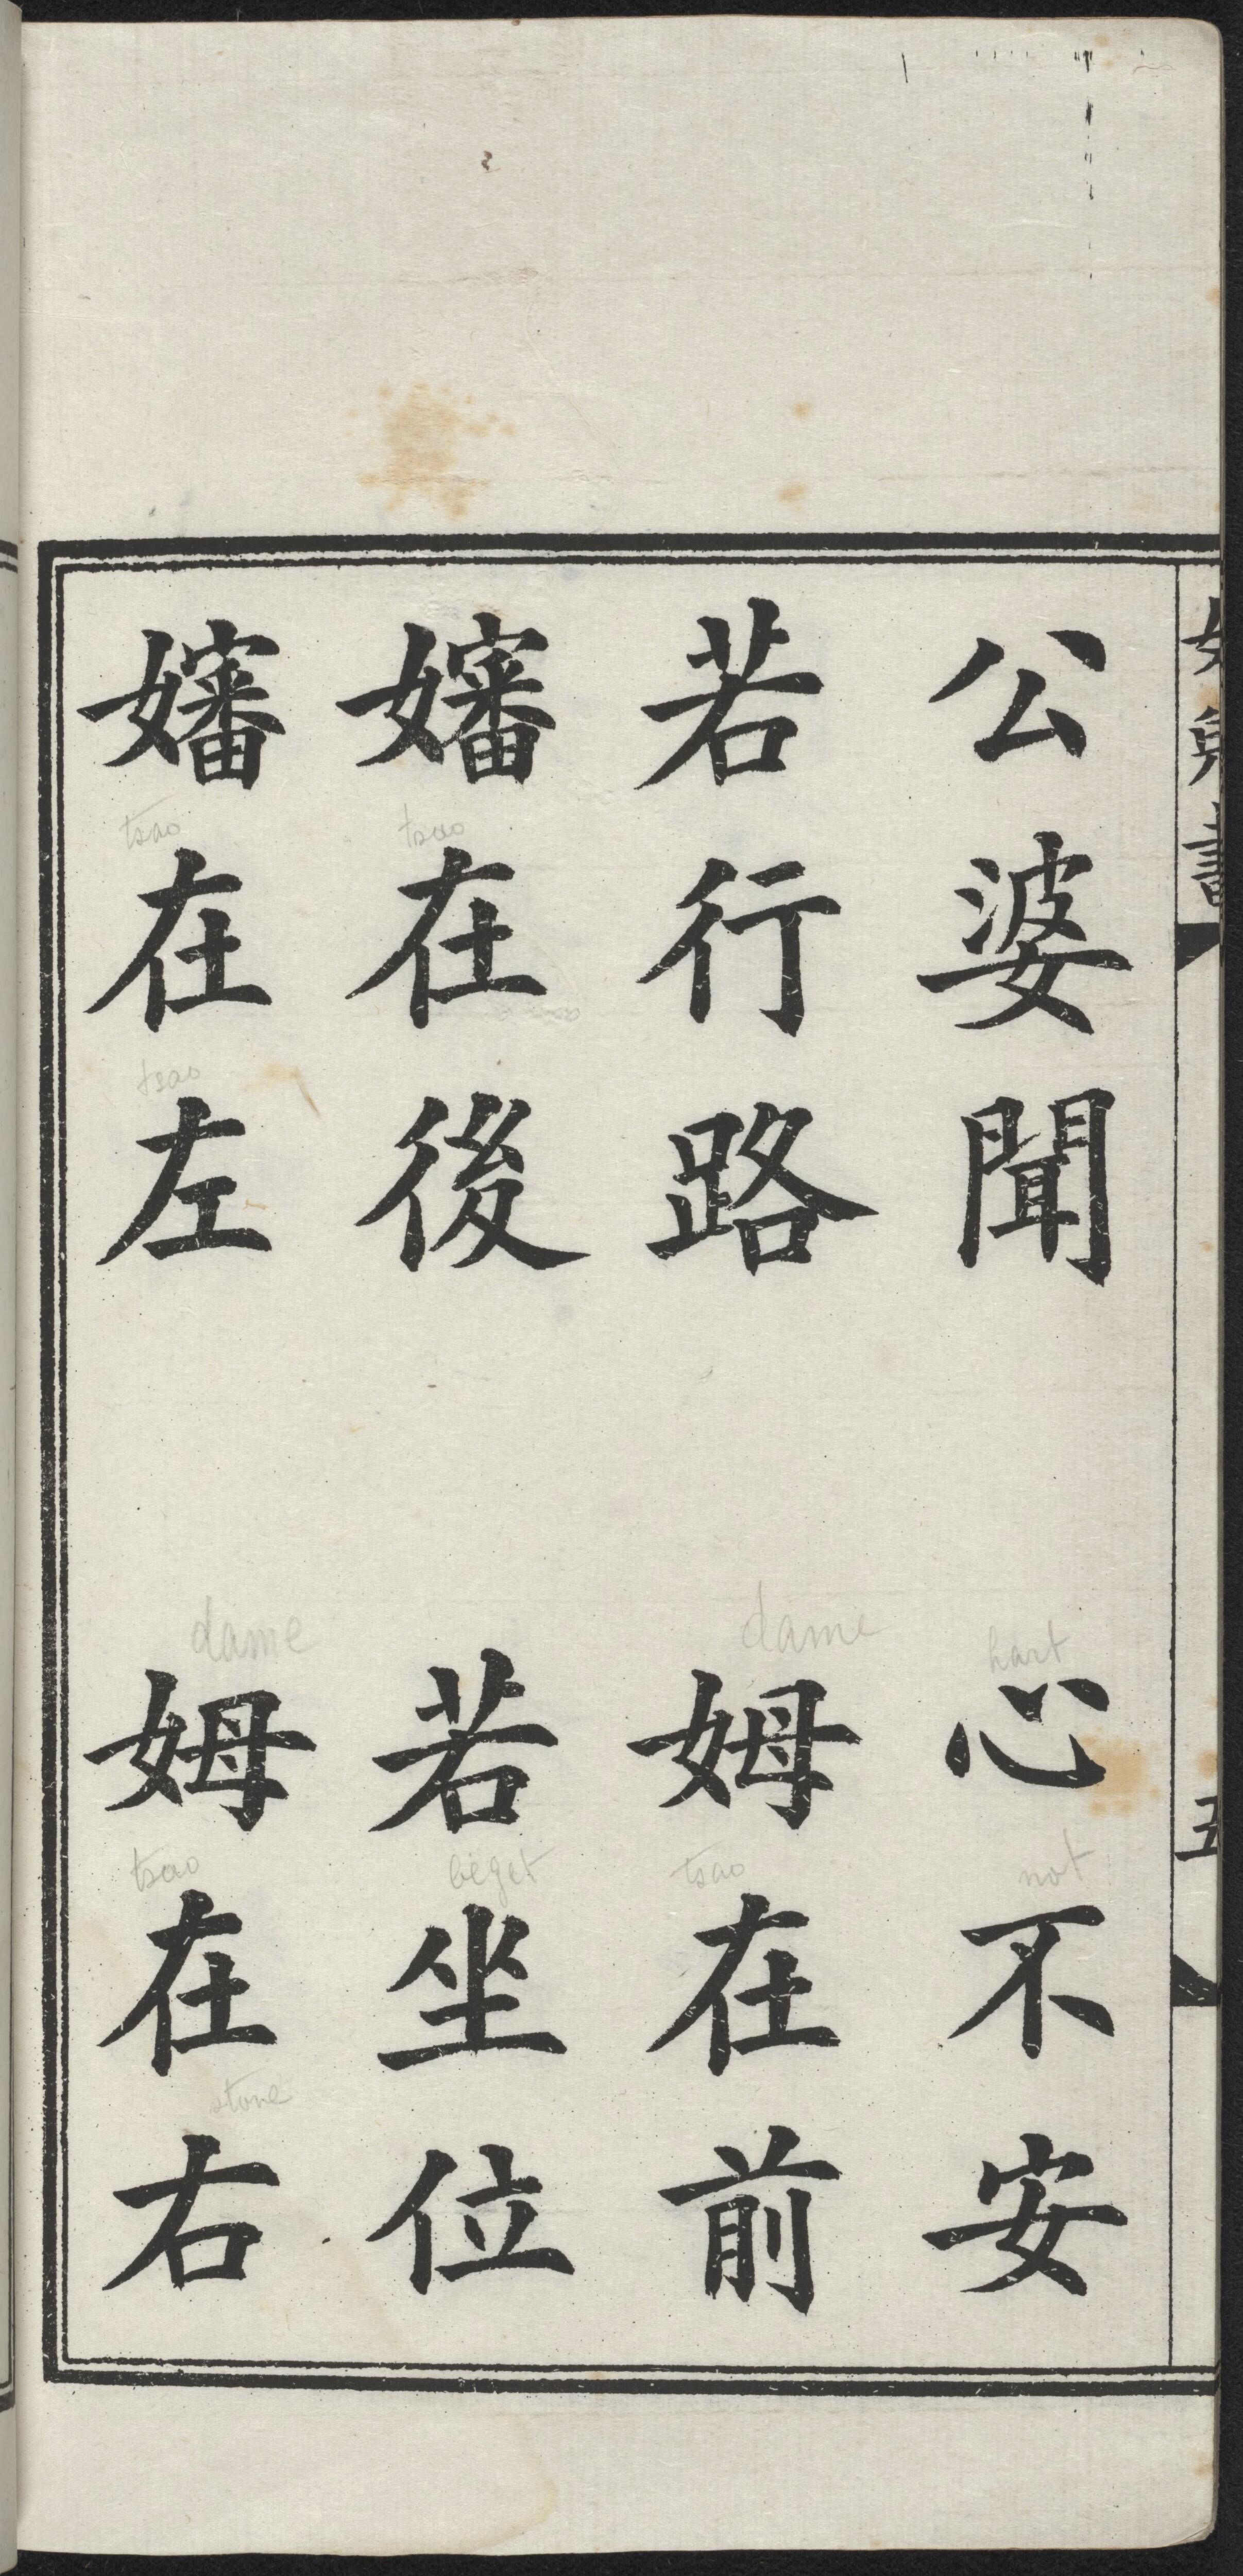 公婆聞 心不安
若行路 姆在前
嬸在後 若坐位
嬸在左 姆在右
女兒書
五
hart
not
dame
tsao
tsao
beget
tsao
tsao
dame
tsao
stone